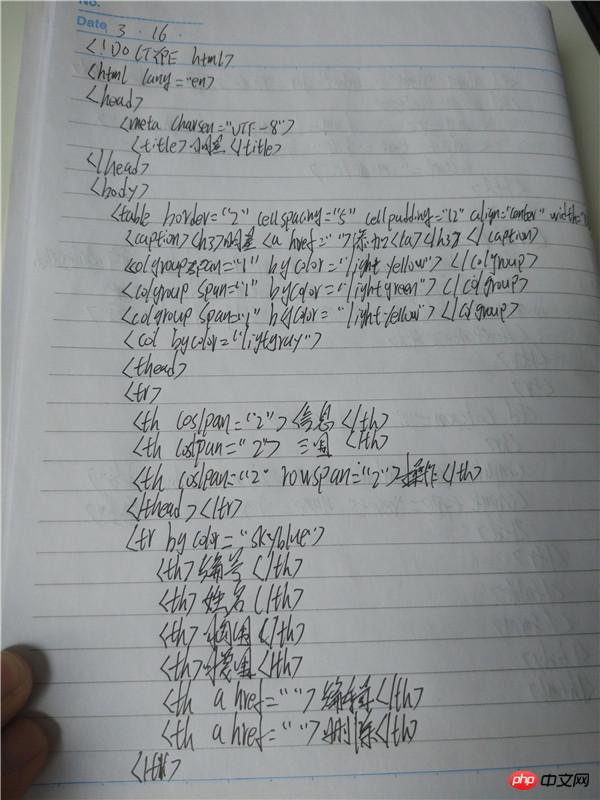 No.
Date 3 · 16 ·
<!DOCTYPE html>
<html lang="en>
<head>
<meta charsen="UTF-8">
<title> </title>
</head>
<body>
<table border="2" cellspacing="5" cellpadding="12" align="center" width="
<caption><h3> <a href=" ">添加</a></h3></caption>
<colgroup span="1" bycolor="lightyellow"></colgroup>
<colgroup span="1" bycolor="lightgreen"></colgroup>
<colgroup span="1" bycolor="lightyellow"></colgroup>
<col bycolor="lightgray">
<thead>
<tr>
<th coslpan="2">信息</th>
<th coslpan="2"> 三国 </th>
<th coslpan="2" rowspan="2">操作</th>
</thead></tr>
<tr bycolor="skyblue">
<th>编号</th>
<th>姓名</th>
<th> </th>
<th> </th>
<th a href=" ">编辑</th>
<th a href=" ">删除</th>
</tr>
php 中文网